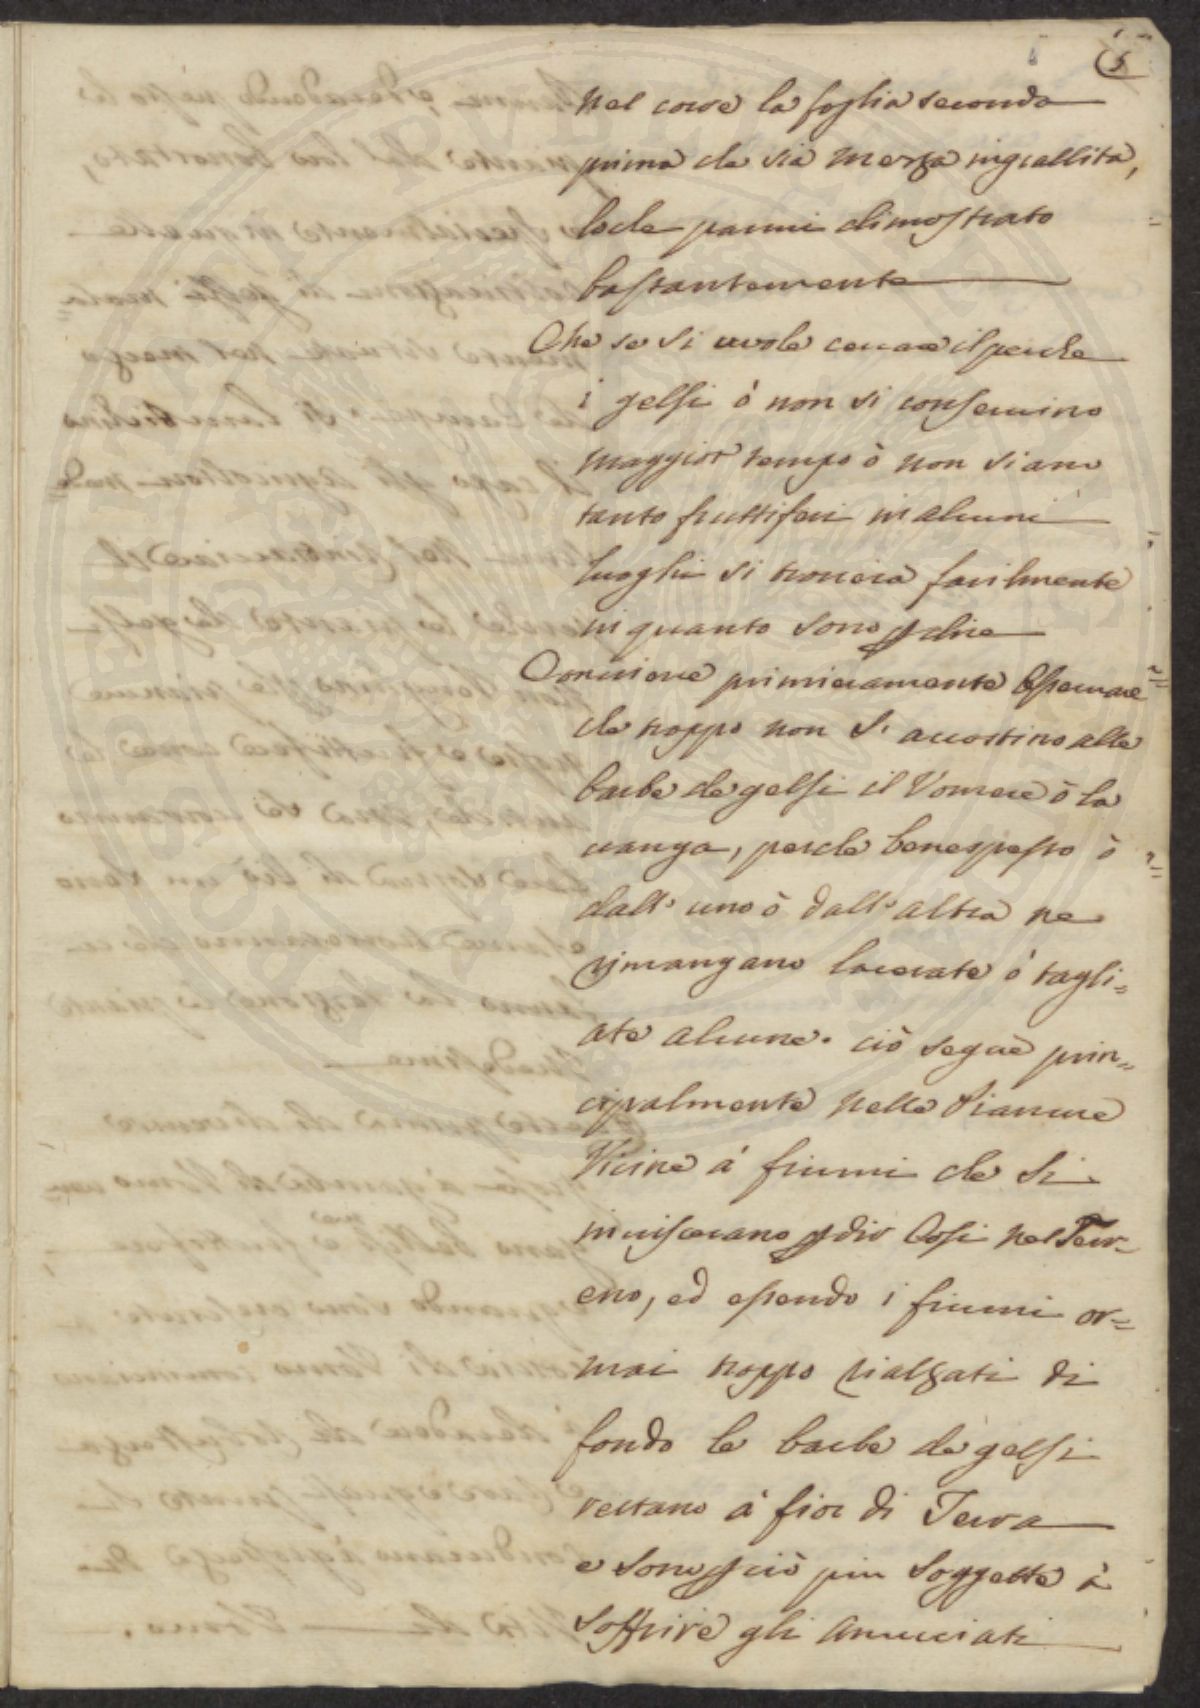 5
nel corre la foglia seconda
prima che sia mezza ingiallita,
loche parmi dimostrato
bastantemente
Che se si uvole cercare il perche
i gelsi ó non si conservino
maggior tempo ò non siano
tanto fruttiferi in alcuni
luoghi si troverà facilmente
in quanto sono p dire
Conviene primieramente osservare
che troppo non si accostino alle
barbe de gelsi il Vomere ò la
vanga, perche benespesso ò
dall' uno ò dall' altra ne
rimangano lacerate ó tagli=
ate alcune. ciò segue prin=
cipalmente nelle Pianure
Vicine á fiumi che si
inviscerano p dir Cosi nel Terr=
eno, ed essendo i fiumi or=
mai troppo rialzati di
fondo le barbe de gelsi
restano á fior di Terra
e sono p ciò piu soggette à
soffrire gli annunciati